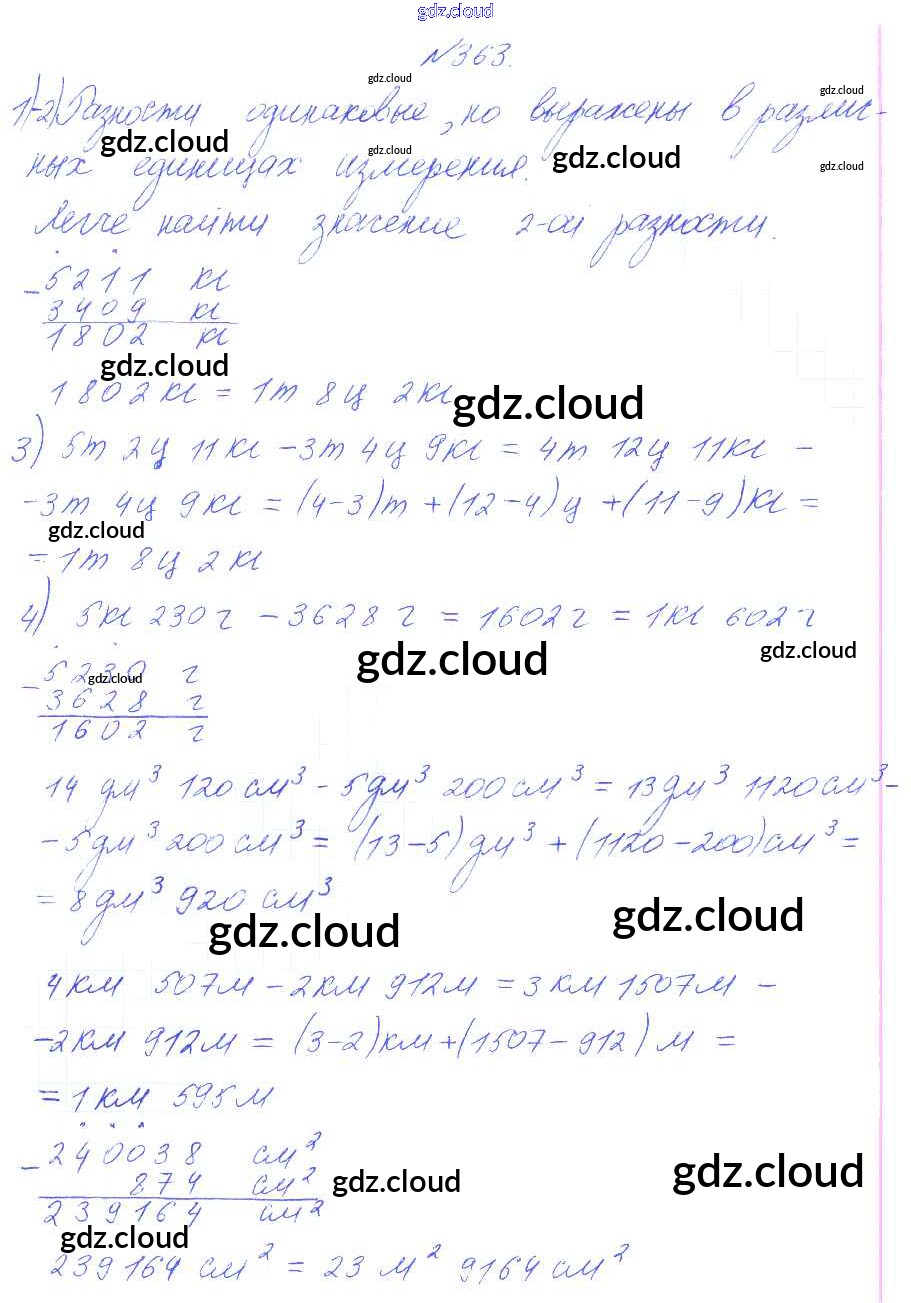 gdz.cloud
№363.
gdz.cloud gdz.cloud
1)-2) Разности одинаковые, но выражены в различ-
gdz.cloud gdz.cloud gdz.cloud gdz.cloud
ных единицах измерения.
Легче найти значение 2-ой разности.
- 5211 кг
3409 кг
1802 кг
gdz.cloud
1802кг = 1т 8ц 2кг
gdz.cloud
3) 5т 2ц 11кг - 3т 4ц 9кг = 4т 12ц 11кг -
- 3т 4ц 9кг = (4-3)т + (12-4)ц + (11-9)кг =
gdz.cloud
= 1т 8ц 2кг
4) 5кг 230г - 3628г = 1602г = 1кг 602г
gdz.cloud gdz.cloud
- 5230 г
gdz.cloud
3628 г
1602 г
14 дм³ 120см³ - 5дм³ 200см³ = 13дм³ 1120см³ -
- 5дм³ 200см³ = (13-5)дм³ + (1120-200)см³ =
= 8дм³ 920см³
gdz.cloud gdz.cloud
4км 507м - 2км 912м = 3км 1507м -
- 2км 912м = (3-2)км + (1507-912)м =
= 1км 595м
- 240038 см²
874 см²
gdz.cloud gdz.cloud
239164 см²
gdz.cloud
239164см² = 23м² 9164см²